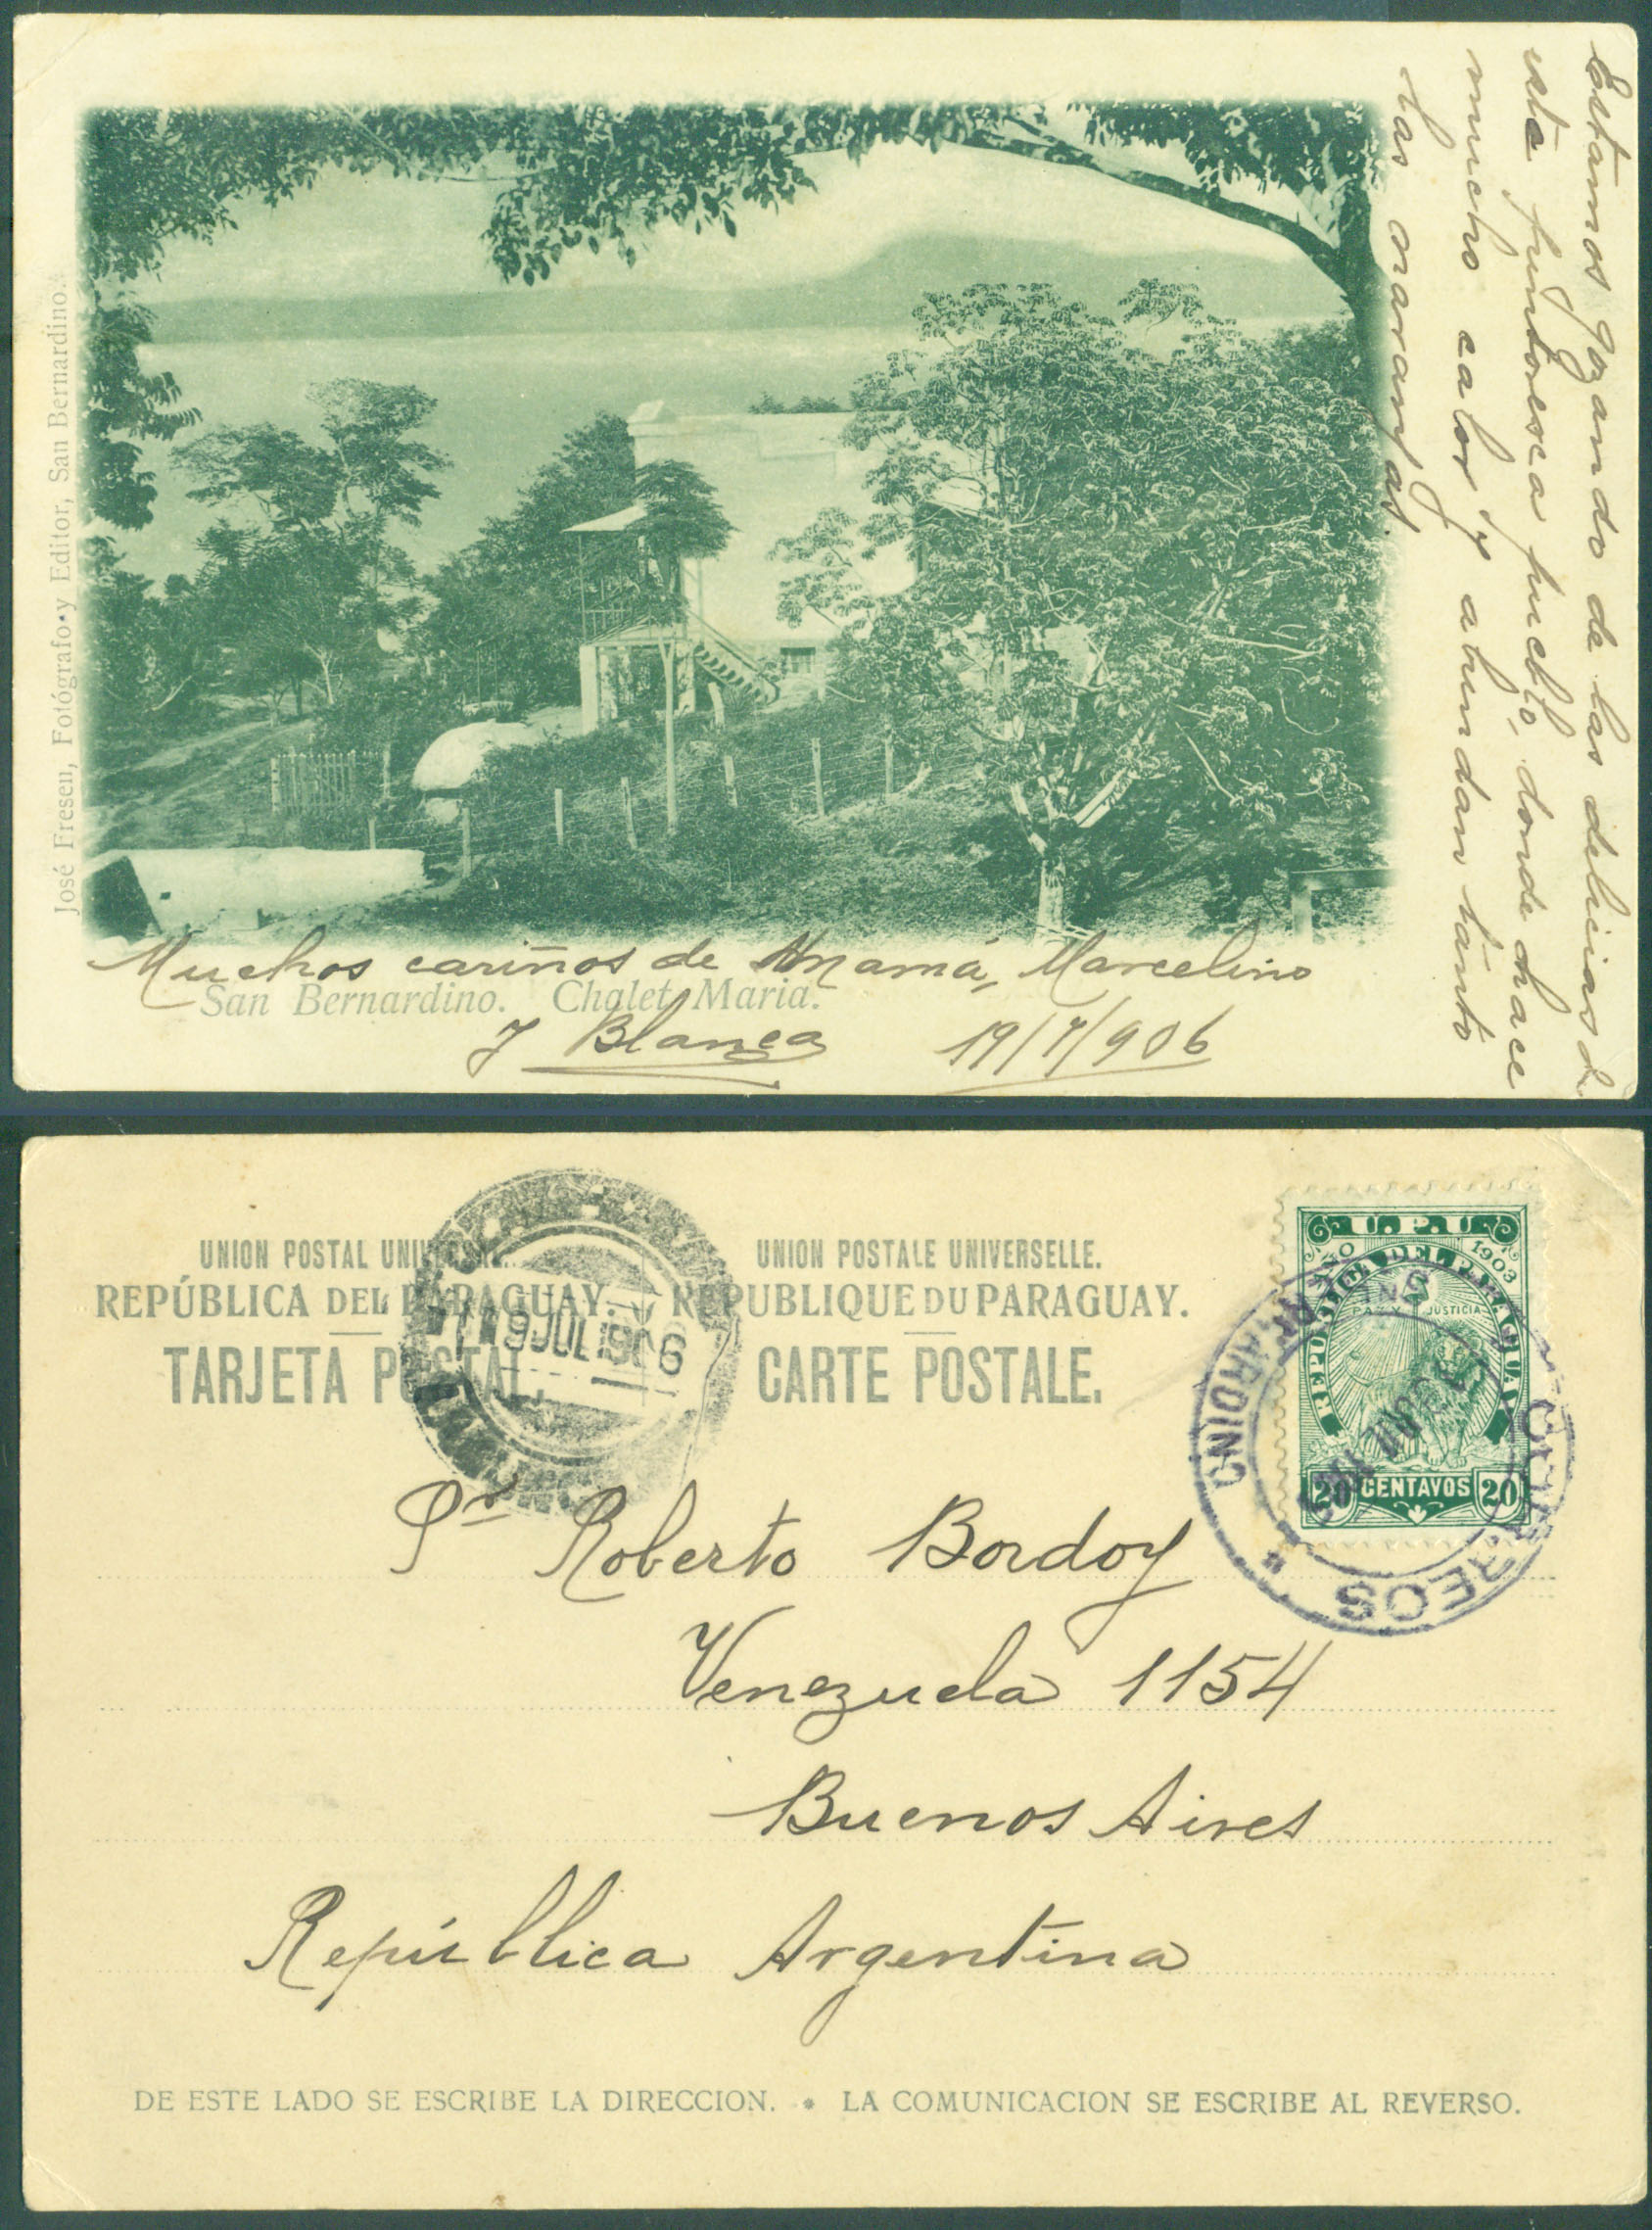 Estamos gozando de las delicias de
este pintoresco pueblo, donde hace
mucho calor y abundan tanto
las naranjas
José Fresen, Fotógrafo y Editor, San Bernardino.
Muchos cariños de Mamá, Marcelino
San Bernardino. Chalet Maria.
y Blanca 19/7/906
UNION POSTAL
REPÚBLICA DEL PARAGUAY.
TARJETA POSTAL.
UNION POSTALE UNIVERSELLE.
REPUBLIQUE DU PARAGUAY.
CARTE POSTALE.
19 JUL 1906
U.P.U.
AÑO 1903
REPUBLICA DEL PARAGUAY
PAZ Y JUSTICIA
20 CENTAVOS 20
CORREOS
SAN BERNARDINO
Sr Roberto Bordoy
Venezuela 1154
Buenos Aires
República Argentina
DE ESTE LADO SE ESCRIBE LA DIRECCION. * LA COMUNICACION SE ESCRIBE AL REVERSO.